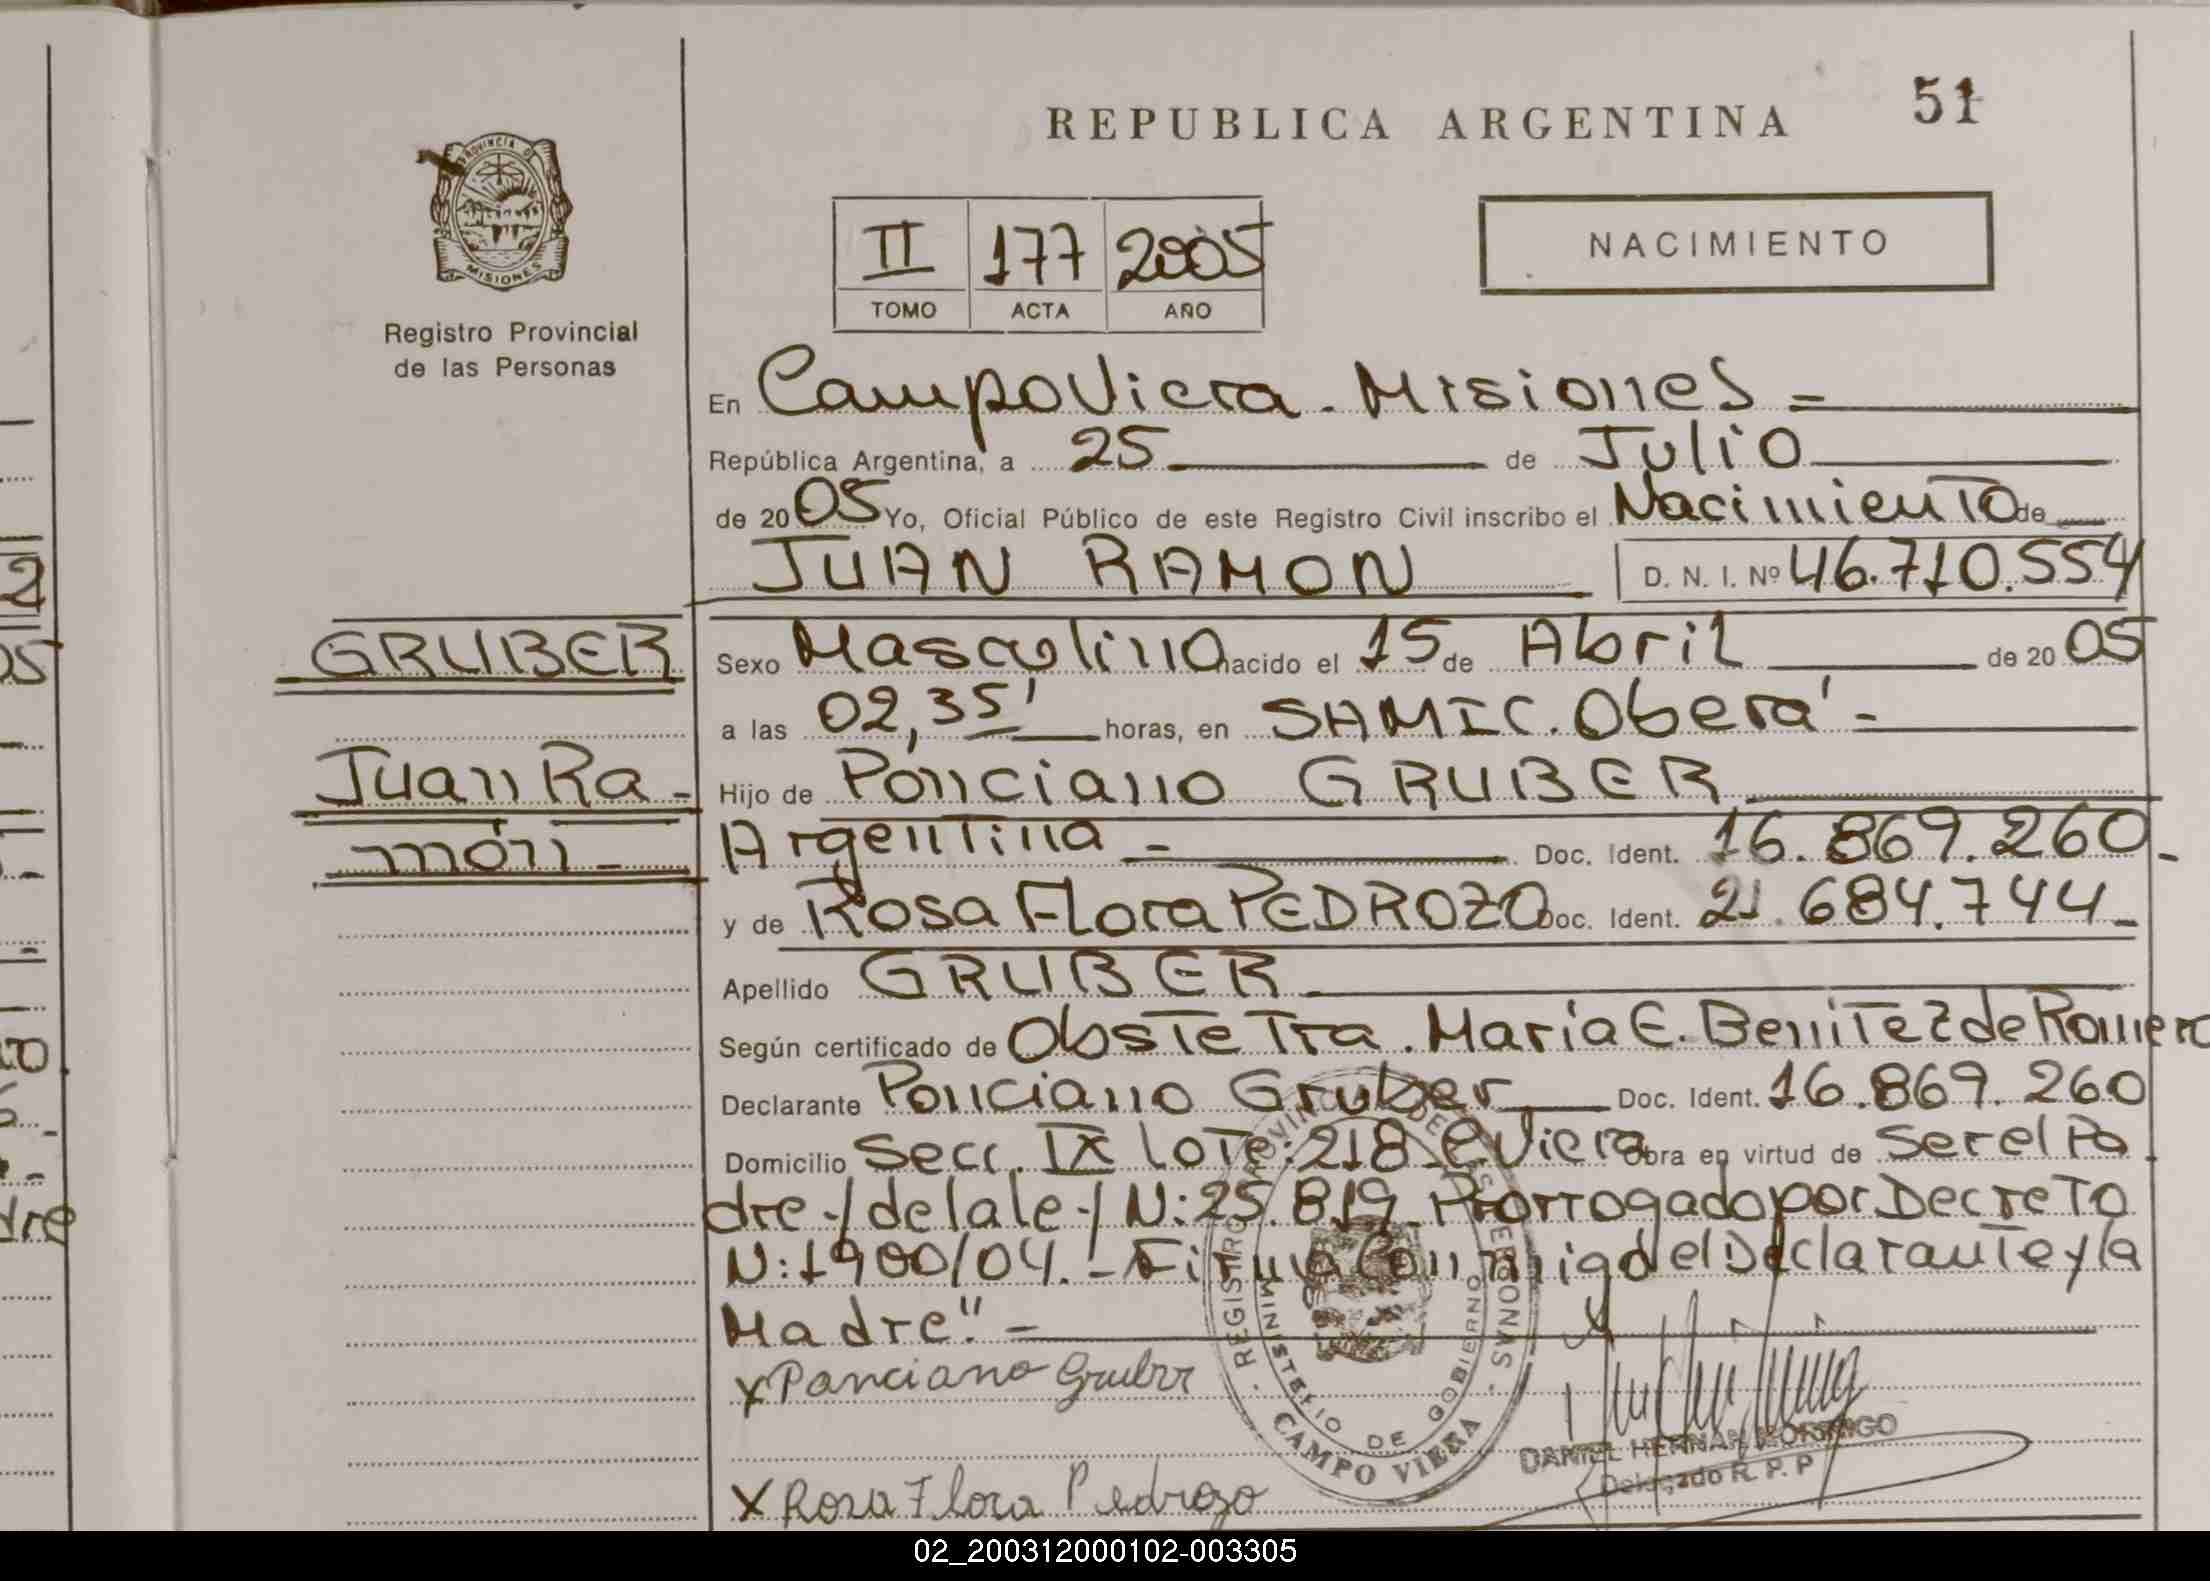 REPUBLICA ARGENTINA 51
PROVINCIA DE
MISIONES
Registro Provincial
de las Personas
II 177 2005
TOMO ACTA AÑO
NACIMIENTO
En Campo Viera. Misiones =
República Argentina, a 25 de Julio
de 2005 Yo, Oficial Público de este Registro Civil inscribo el Nacimiento de
JUAN RAMON D. N. I. Nº 46.710.554
GRUBER
Juan Ra-
món-
Sexo Masculino nacido el 15 de Abril de 2005
a las 02,35' horas, en SAMIC. Oberá =
Hijo de Ponciano GRUBER
Argentina - Doc. Ident. 16.869.260-
y de Rosa Flora PEDROZO Doc. Ident. 21.684.744-
Apellido GRUBER
Según certificado de Obstetra. María E. Benitez de Romero
Declarante Ponciano Gruber Doc. Ident. 16.869.260
Domicilio Secc. IX Lote: 218 C. Viera Obra en virtud de Ser el Pa
dre-/ de la le-/ N: 25.819 Prorrogado por Decreto
N: 1900/04.- Firma Conmigo el Declarante y la
Madre". -
x Ponciano Gruber
x Rosa Flora Pedrozo
REGISTRO PROVINCIAL DE LAS PERSONAS
MINISTERIO DE GOBIERNO
CAMPO VIERA
DANIEL HERNAN MORINIGO
Delegado R. P. P
2
05
dre
02_200312000102-003305